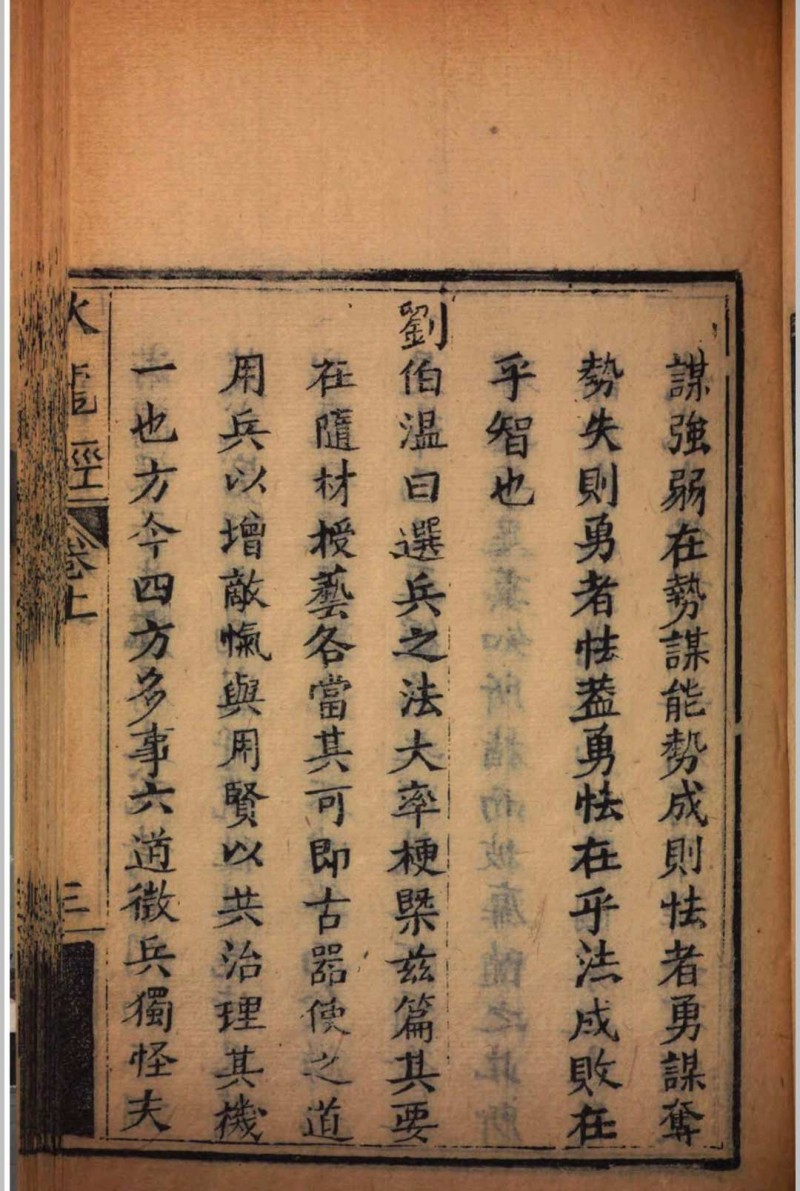 謀強弱在勢謀能勢成則怯者勇謀奪
勢失則勇者怯葢勇怯在乎法成敗在
乎智也
劉伯溫曰選兵之法大率梗槩兹篇其要
在隨材授藝各當其可即古器使之道
用兵以增敵愾與用賢以共治理其機
一也方今四方多事六道徵兵獨怪夫
火龍經 卷上 三